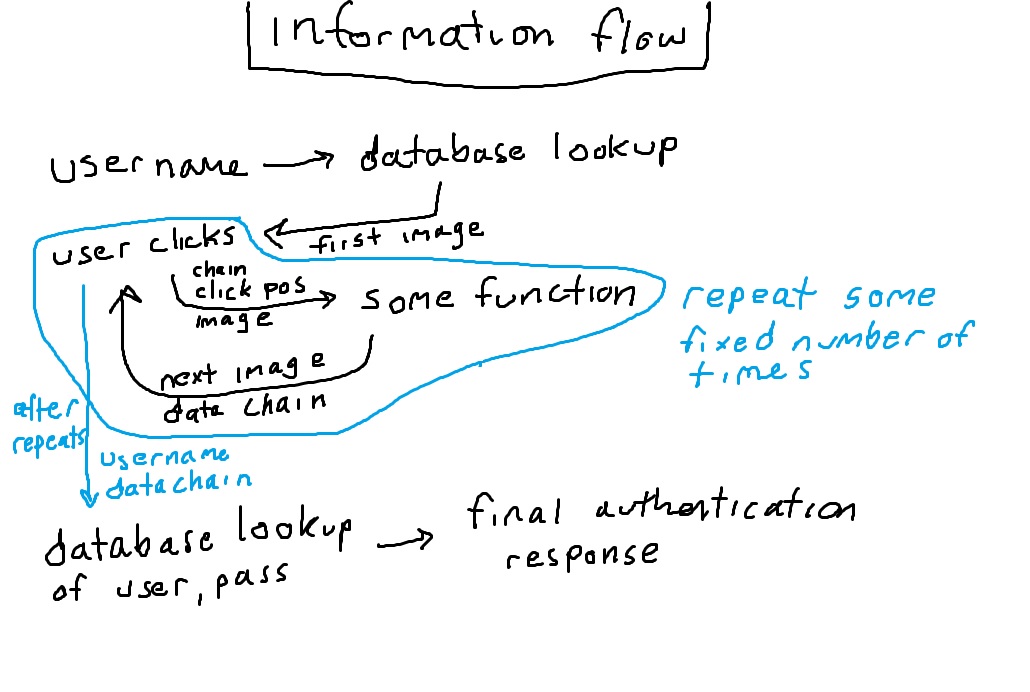 information flow
username
database lookup
first image
user clicks
chain
click pos
image
some function
next image
data chain
repeat some
fixed number of
times
after
repeats
username
datachain
database lookup
of user, pass
final authentication
response